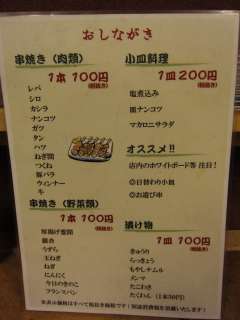 おしながき
串焼き（肉類）
1本 100円
(税抜き)
レバ
シロ
カシラ
ナンコツ
ガツ
タン
ハツ
ねぎ間
つくね
豚バラ
ウィンナー
牛
串焼き（野菜類）
1本 100円
(税抜き)
厚揚げ
銀杏
うずら
玉ねぎ
ねぎ
にんにく
今日のきのこ
フランスパン
小皿料理
1皿 200円
(税抜き)
塩煮込み
鶏ナンコツ
マカロニサラダ
オススメ!!
店内のホワイトボード等 注目!
◎日替わり小皿
◎お遊び串
漬け物
1皿 100円
(税抜き)
きゅうり
らっきょう
もやしナムル
メンマ
たこわさ
たくわん（1本50円）